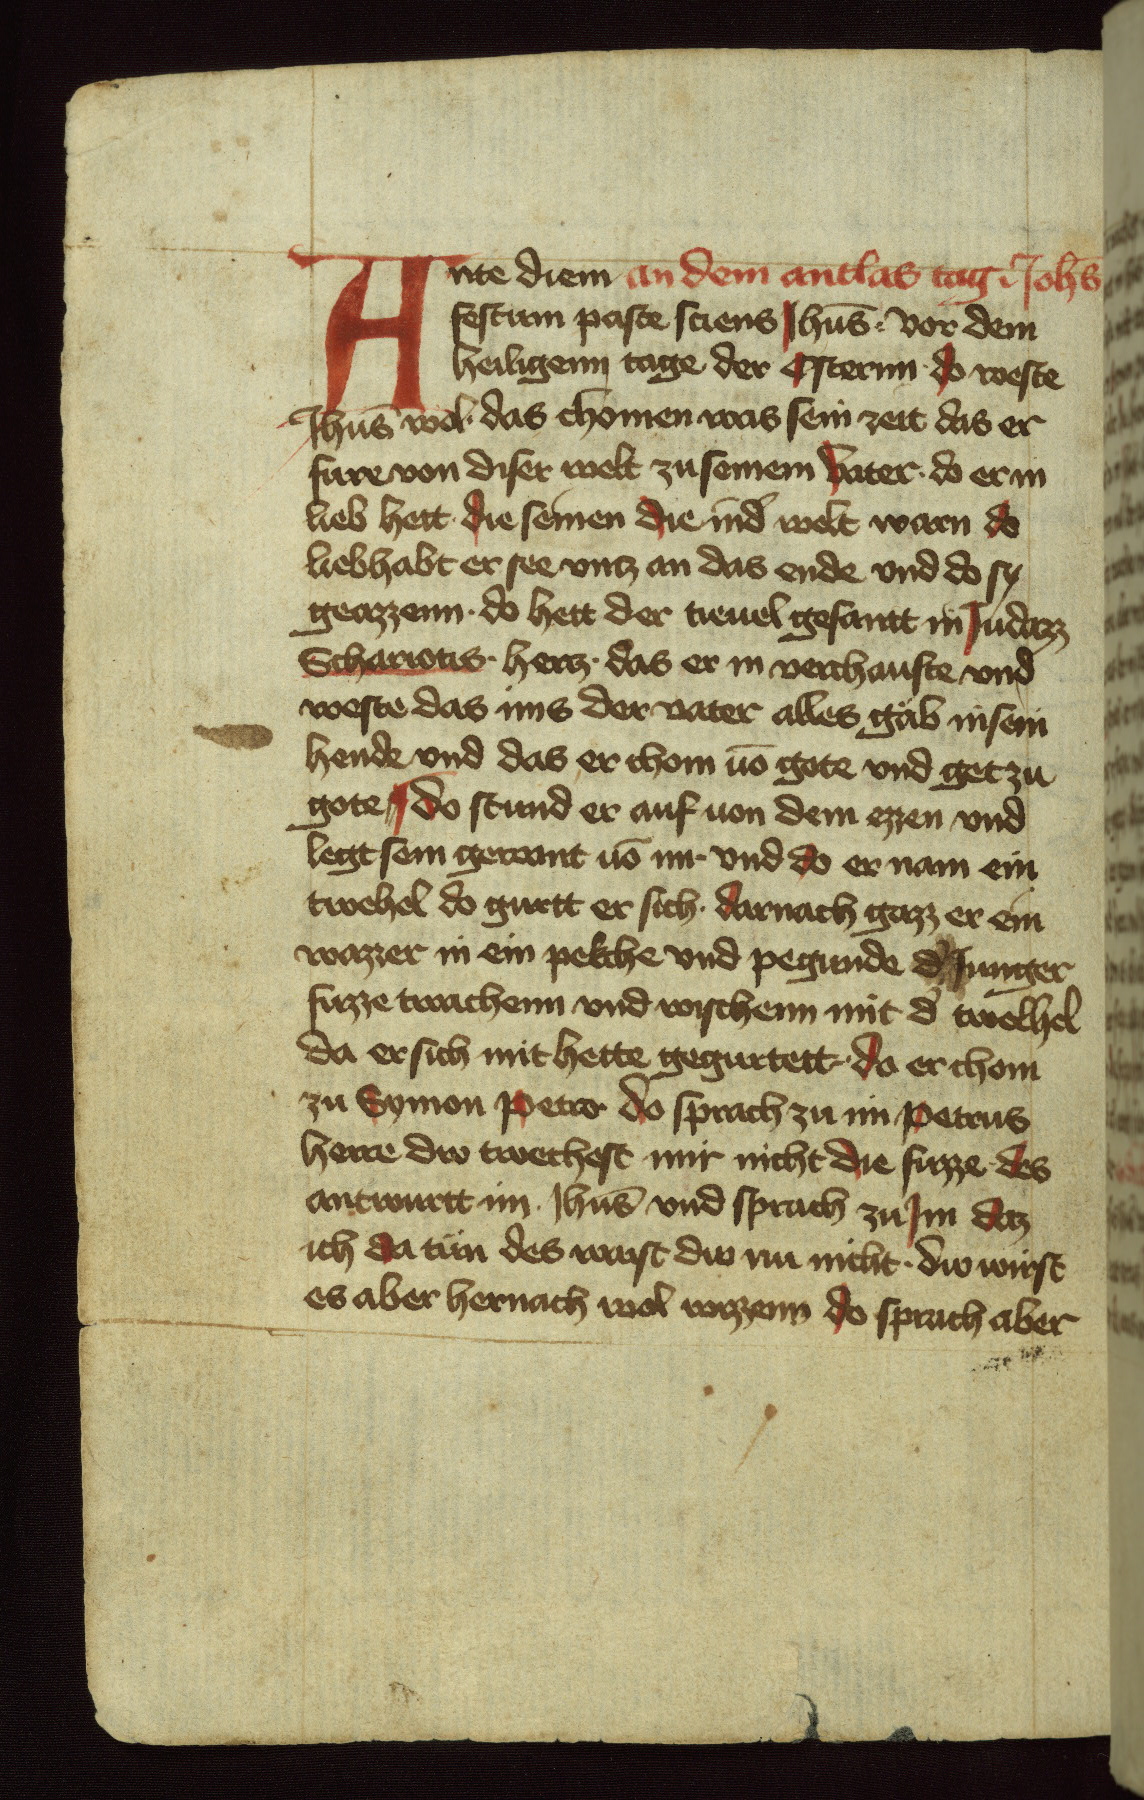 Ante diem an dem antlas tag ī Johīs
festum pasce sciens Jhūs · Vor dem
heiligenn tage der Osternn · do weste
Jhūs wol · das chomen was sein zeit das er
fure von diser welt zu seinem Vater · do er in
lieb hett · die seinen die in d' welt warn do
liebhabt er see vntz an das ende vnd do sy
geazzenn · do hett der tieuel gesantt in Judazz
Schariotis · hertz · das er in verchaufte vnd
weste das ims der vater alles gäb in sein
hende vnd das er chom uō gote vnd get zu
gote ¶ do stund er auf uon dem ezzen vnd
legt sein gewant uō im · vnd do er nam ein
twehel do gurtt er sich · darnach gozz er ein
wazzer in ein pekche vnd pegunde d' Junger
fuzze twachenn vnd wischenn mit d' twelhel
da er sich mit hette gegurtett · do er chom
zu Symon Petro do sprach zu im Petrus
herre dw twechest mir nicht die fuzze · des
antwurtt im · Jhūs vnd sprach zu Jm daz
ich da tün des waist dw nu nicht · dw wirst
es aber hernach wol wizzenn do sprach aber